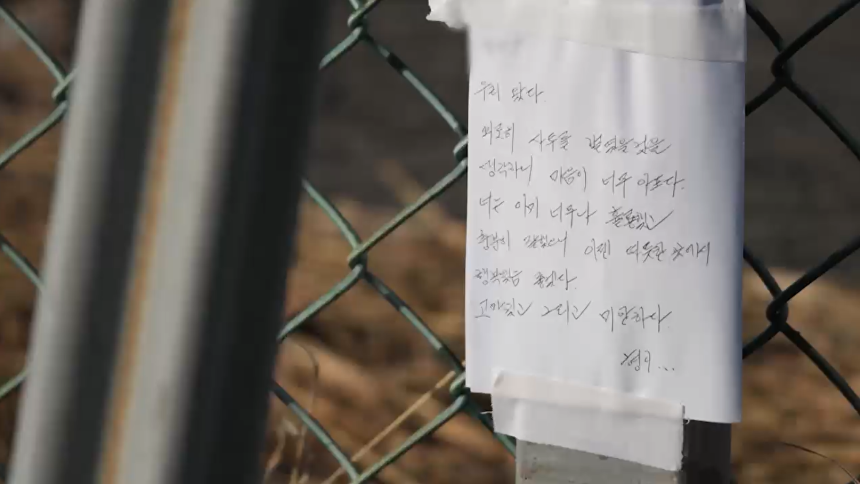 우리 왔다.
외로이 사투를 벌였을것을
생각하니 마음이 너무 아프다.
너는 이미 너무나 훌륭했고
충분히 잘했으니 이젠 따뜻한 곳에서
행복했음 좋겠다.
고마웠고 그리고 미안하다
형이...